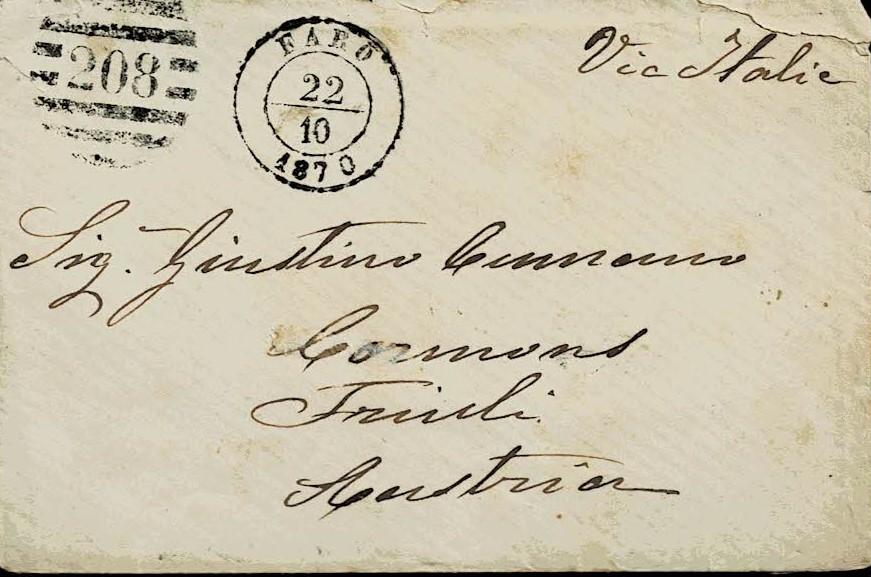 208
FARO
22
10
1870
Via Italie
Sig. Giustino Cumano
Cormons
Friuli
Austria